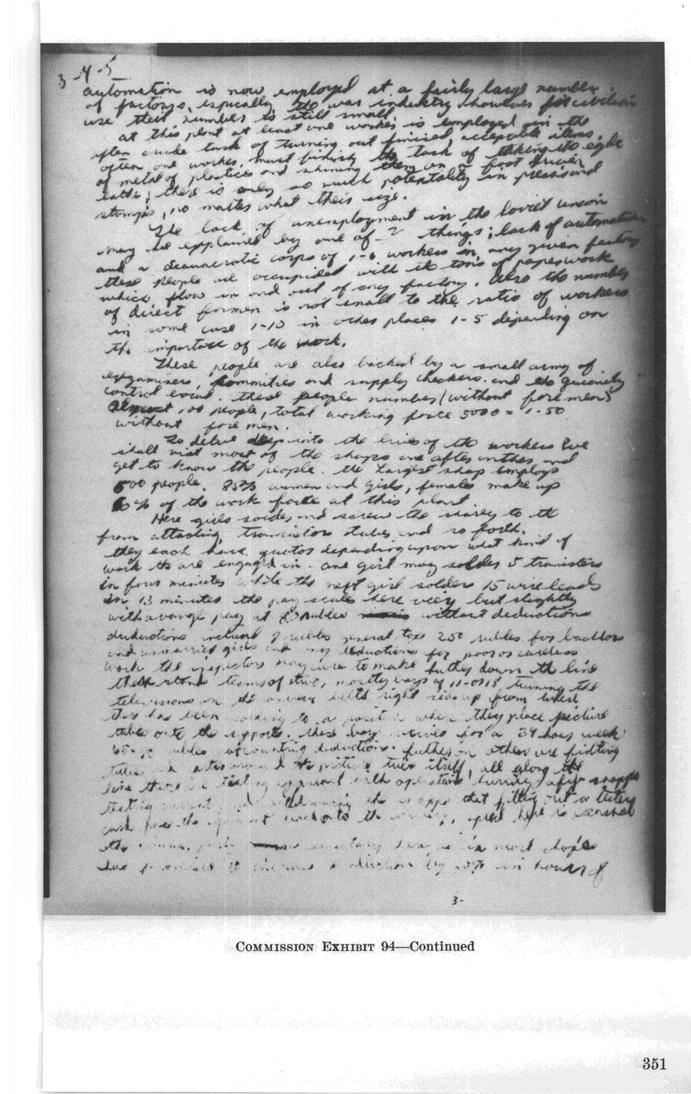 3-4-5
automation is now employed at a fairly large number
of factorys, espically the war industry however for civilian
use their number is still small.
at this plant at least one worker is employed in the
often crude task of turning out finised, acceptable items.
often one worker, must finish the task of taking the edge
of metal of plastics and shining them on a foot driven
lathe; there is only so much potentality in presses and
stamps, no matter what their size.
The lack of unemployment in the Soviet union
may be explained by one of 2 things; lack of automation
and a beaucratic corps of 1-6 workers in any given factory
these people are occupided with the tons of paperwork
which flow in and out of any factory. Also the number
of direct formen is not small to the ratio of workers
in some case 1-10 in other places 1-5 depending on
the importance of the work.
These people are also backed by a small army of
examiners, committies and supply checkers and the
control board. these people number (without foremen)
almost 100 people, total working force 5000 = 1-50
without foremen.
To delve deep into the lives of the workers we
shall visit most of the shops one after another and
get to know the people. the Largest shop employs
500 people. 85% women and girls, females make up
60% of the work force at this plant.
Here girls solder and screw the to the
from attaching, transistors tubes and so forth.
they each have quotos depending upon what kind of
work they are engaged in. one girl may solder 5 transisters
in four minutes while the next girl solders 15 wireleads
in 13 minutes the pay scales here very but slightly
with average pay at 80 rubles without deductions
deductions include 7 rubles general tax 2.50 rubles for bachlors
and unmarried girls and any deductions for poor or careless
work the inspectors may care to make futher down the line
there stand teams of two, mostly boys of 17 or 18 turning the
televisions on the belts right up from
there has been to a position when they place pecture
tubes onto the supports. these boys recive for a 39 hour week
rubles not counting deductions. futher on others are fitting
tubes the picture tube itself, all along the
line there are testing with operators hurring
testing that fitting out a
cards pass the back onto the speed here is essenial
the in most shops
has promised to increase production by in honor of
3-
COMMISSION EXHIBIT 94—Continued
351